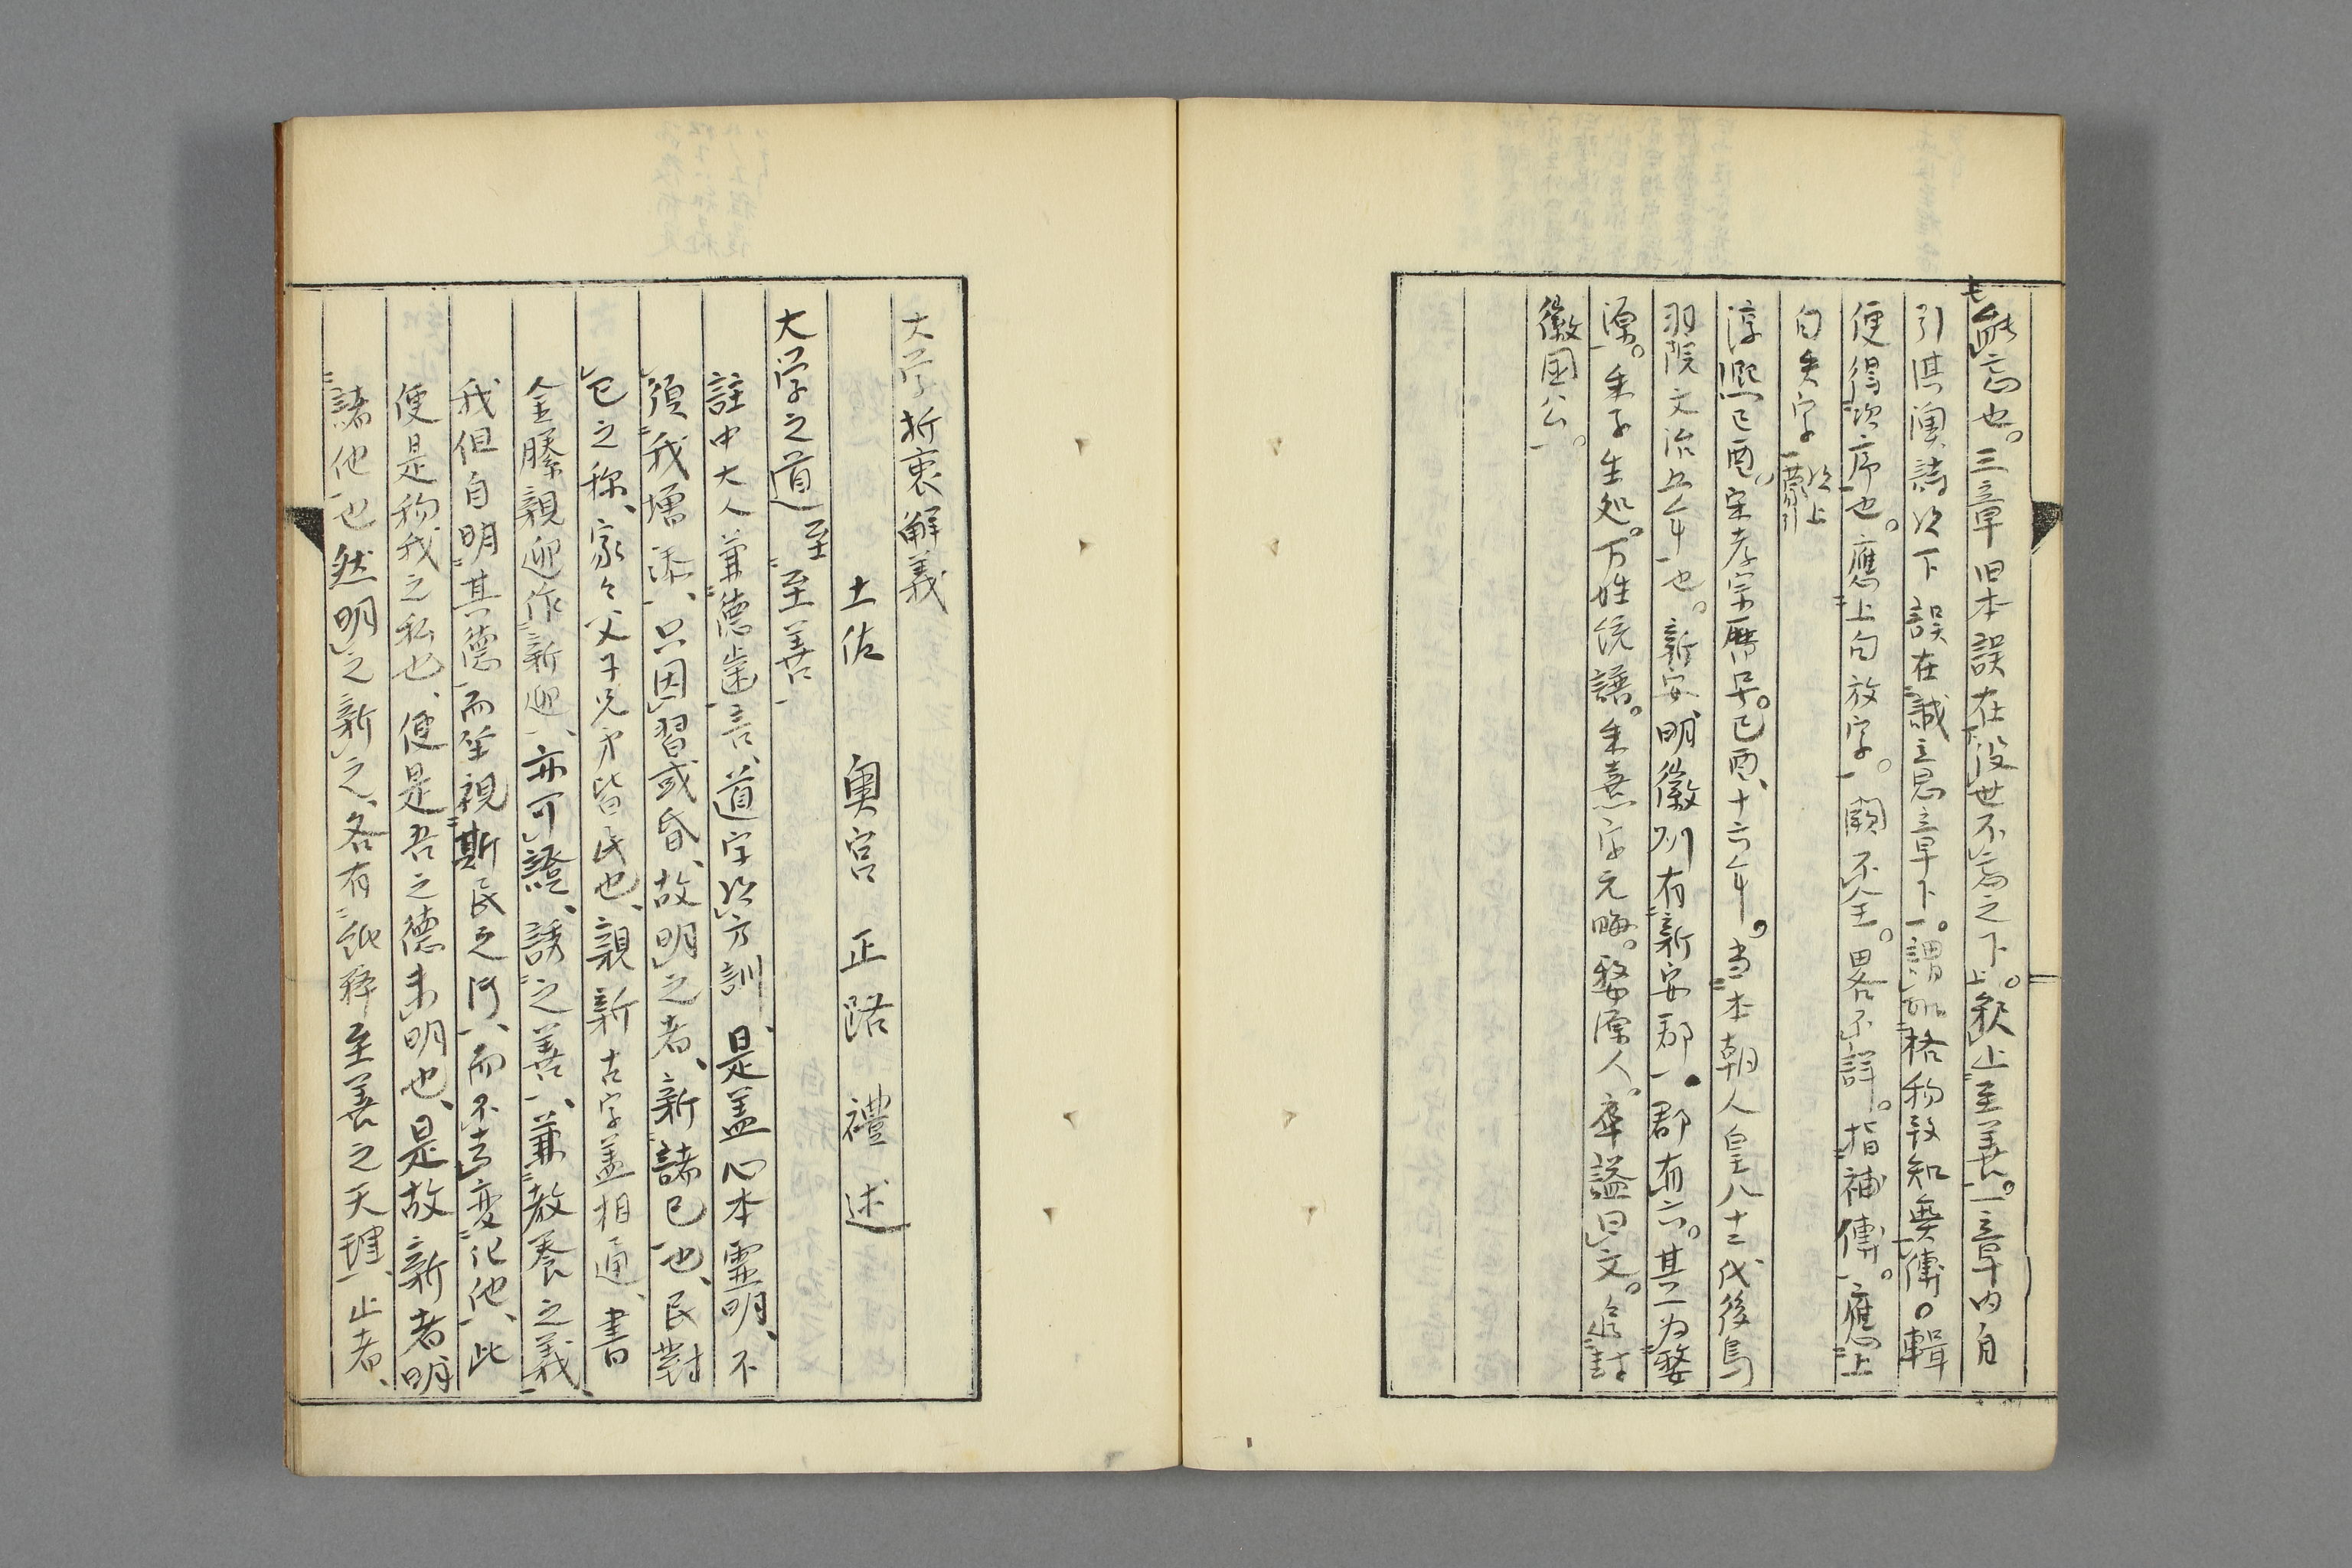 能忘也。三章旧本誤在没世不忘之下。欸止至善。一章内自
引淇澳詩以下誤在誠意章下。謂格物致知無傳。輯
便得次序也。應上句放字。闕不全。畧不詳。指補傳。應上
句失字 以上蒙引
淳熙已酉。宋孝宗暦号。已酉、十六年。当本朝人皇八十二代後鳥
羽院文治五年也。新安明徽州有新安郡。郡有六。其一为婺
源。朱子生処。万姓統譜。朱熹字元晦。婺源人。卒謚曰文。追封
徽国公。
大学折衷解義
土佐 奥宮正路禮述
大学之道 至至善
註中大人兼德歯言、道字以方訓、是盖心本霊明、不
須我増添、只因習或昏、故明之者、新諸已也、民對
已之称、家々父子兄弟皆民也、親新古字盖相通、書
金縢親迎作新迎、亦可證、誘之善、兼教養之義、
我但自明其德而坐視斯民之、而不去変化他、此
便是物我之私也、便是吾之德未明也、是故新者明
諸他也然明之新之、各有至善之天理、止者、